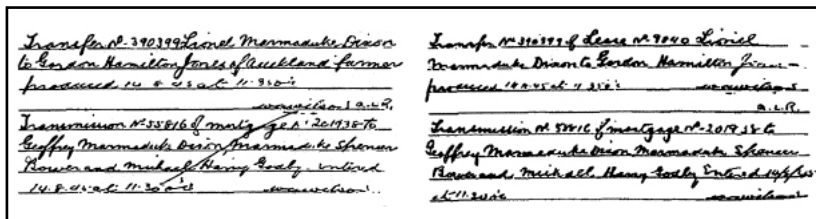 Transfer No. 390399 Lionel Marmaduke Dixon
to Gordon Hamilton Jones of Auckland farmer
produced 14.8.45 at 11.30 o'c
A.L.R.
Transmission No. 55816 of mortgage No. 201938 to
Geoffrey Marmaduke Dixon Marmaduke Spencer
Bower and Michael Harry Godby entered
14.8.45 at 11.30 o'c
Transfer No. 390399 of Lease No. 9040 Lionel
Marmaduke Dixon to Gordon Hamilton Jones
produced 14.8.45 at 11.30 o'c
A.L.R.
Transmission No. 55816 of mortgage No. 201938 to
Geoffrey Marmaduke Dixon Marmaduke Spencer
Bower and Michael Harry Godby Entered
at 11.30 o'c